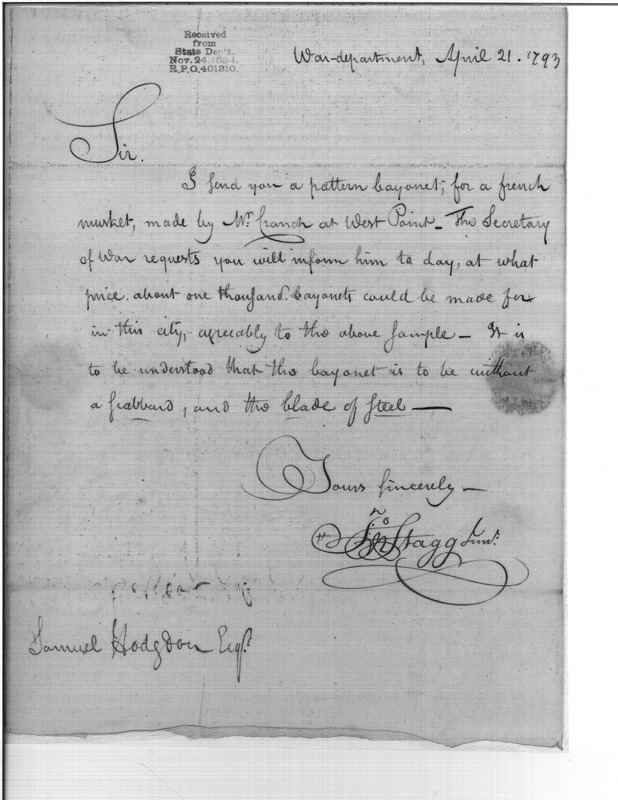 Received
from
State Dep't.
Nov. 24, 1894
R.P.O. 401310.
War-department, April 21. 1793
Sir.
I send you a pattern bayonet, for a french
musket, made by Mr. Cranch at West Point - The Secretary
of War requests you will inform him to day, at what
price about one thousand bayonets could be made for
in this city, agreeably to the above sample - It is
to be understood that the bayonet is to be without
a scabbard, and the blade of steel —
Yours sincerely -
Jno Stagg Junr.
Samuel Hodgdon Esqr.